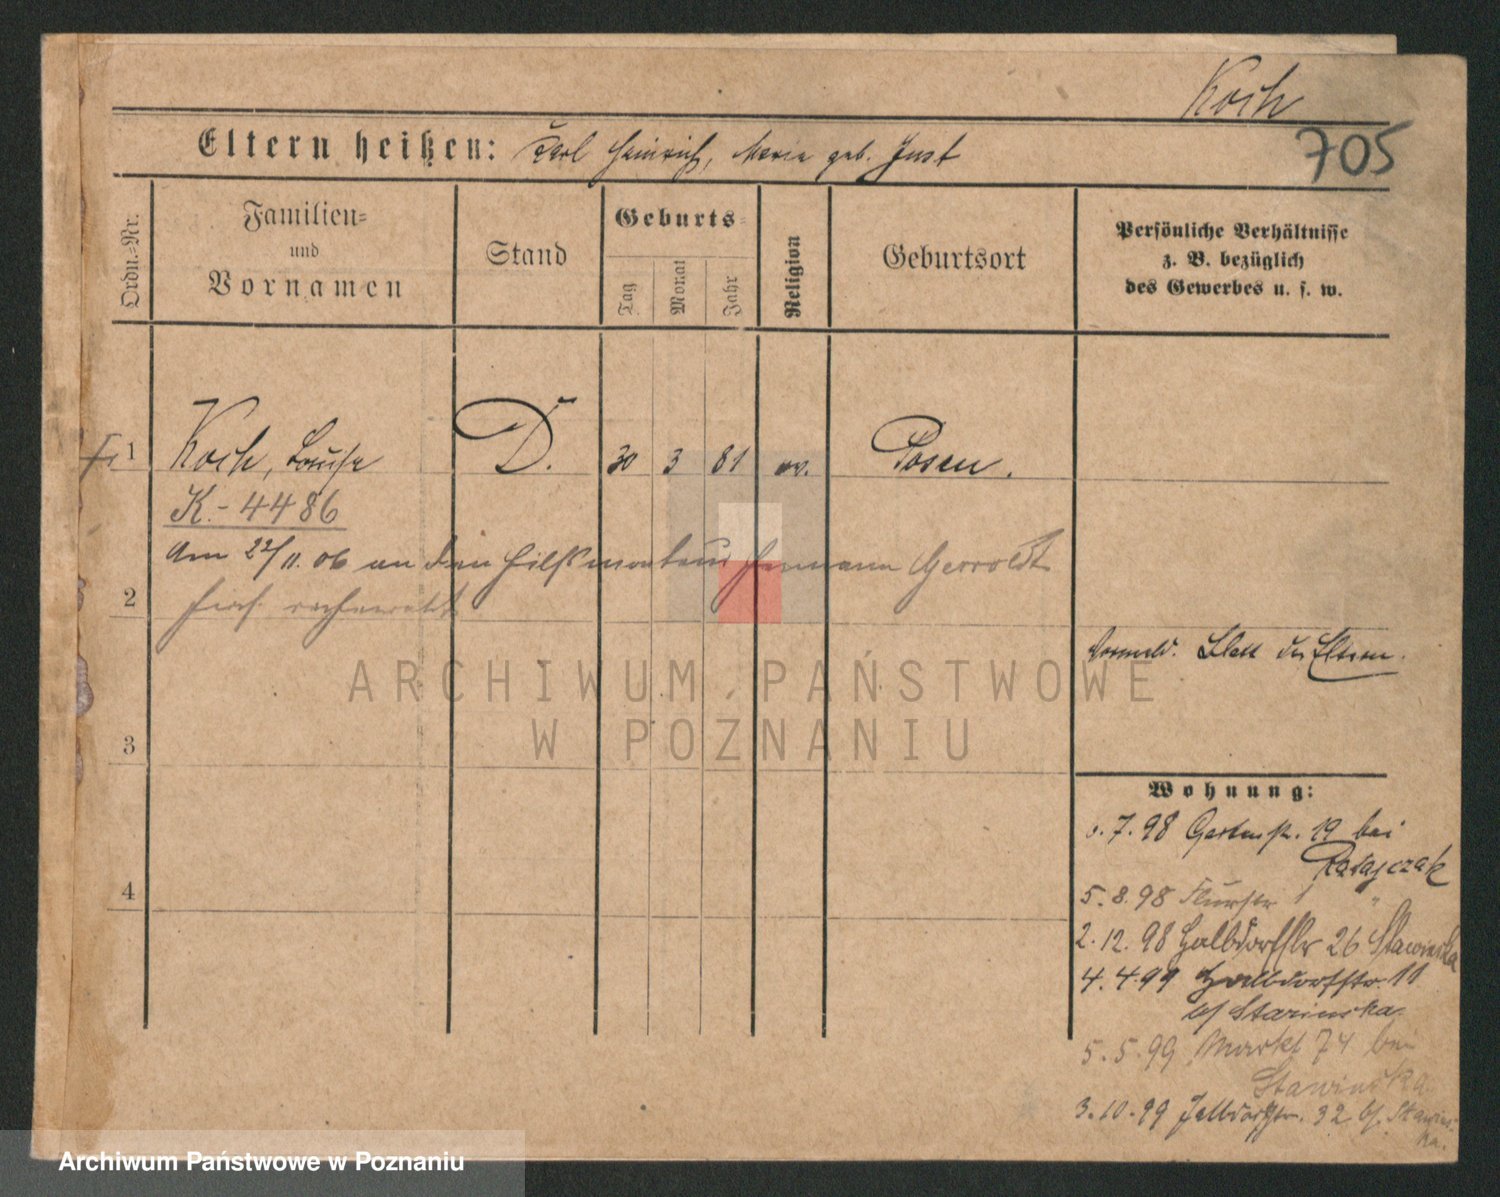 Koch
705
Eltern heißen: Karl Heinrich, Maria geb. Just
Ordn.-Nr.
Familien-
und
Vornamen
Stand
Geburts-
Tag
Monat
Jahr
Religion
Geburtsort
Persönliche Verhältnisse
z. B. bezüglich
des Gewerbes u. s. w.
1 Koch, Louise D. 30 3 81 ev. Posen.
K.-4486
Am 22/11. 06 an den Hilfsmonteur Hermann
2 hier
Vormeld. Blatt der Eltern.
ARCHIWUM PAŃSTWOWE
W POZNANIU
3
Wohnung:
7.98 Gartenstr. 19 bei
Ratajczak
4
5.8.98 Flurstr "
2.12.98 Halbdorfstr 26 Stawinska
4.4.99 Halbdorfstr. 11
bf Stawinska.
5.5.99 Markt 74 bei
Stawinska
3.10.99 Halbdorfstr. 32 bf. Stawins-
ka.
Archiwum Państwowe w Poznaniu